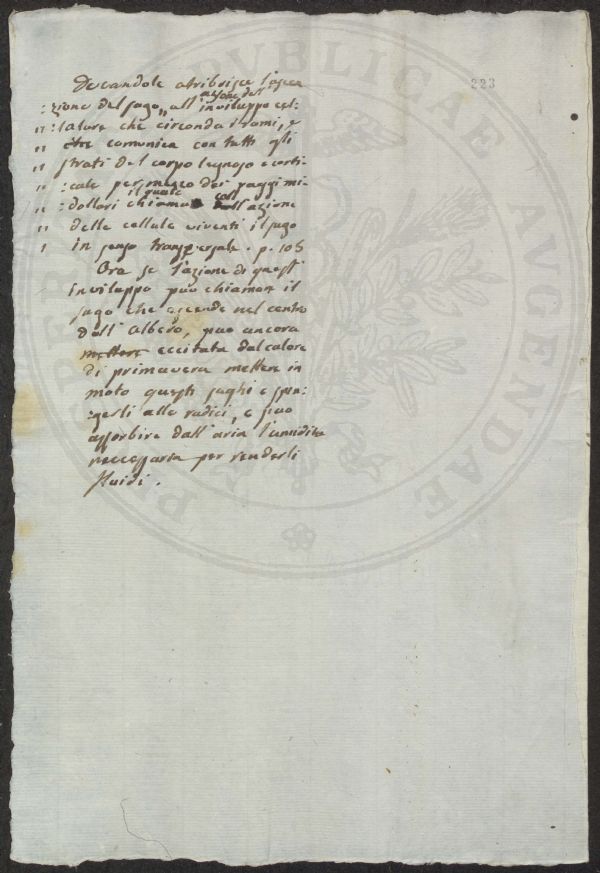 223
Decandole atribuisce l'ascen
:zione del sugo,, all' azione dell' inviluppo cel:
,, :lulare che circonda i rami, e
,, che comunica con tutti gli
,, strati del corpo legnoso e corti
,, :cale per mezzo dei raggi mi-
,, dollari il quale chiama coll' azione
,, delle cellule viventi il sugo
, in senso transversale. p. 105
Ora se l'azione di quest'
inviluppo può chiamare il
sugo che ascende nel centro
dell' albero, può ancora
mettere eccitata dal calore
di primavera mettere in
moto questi sughi e spin:
:gerli alle radici, e può
assorbire dall'aria l'umidità
necessaria per renderli
fluidi.
PROSPER PUBLICAE AUGENDAE